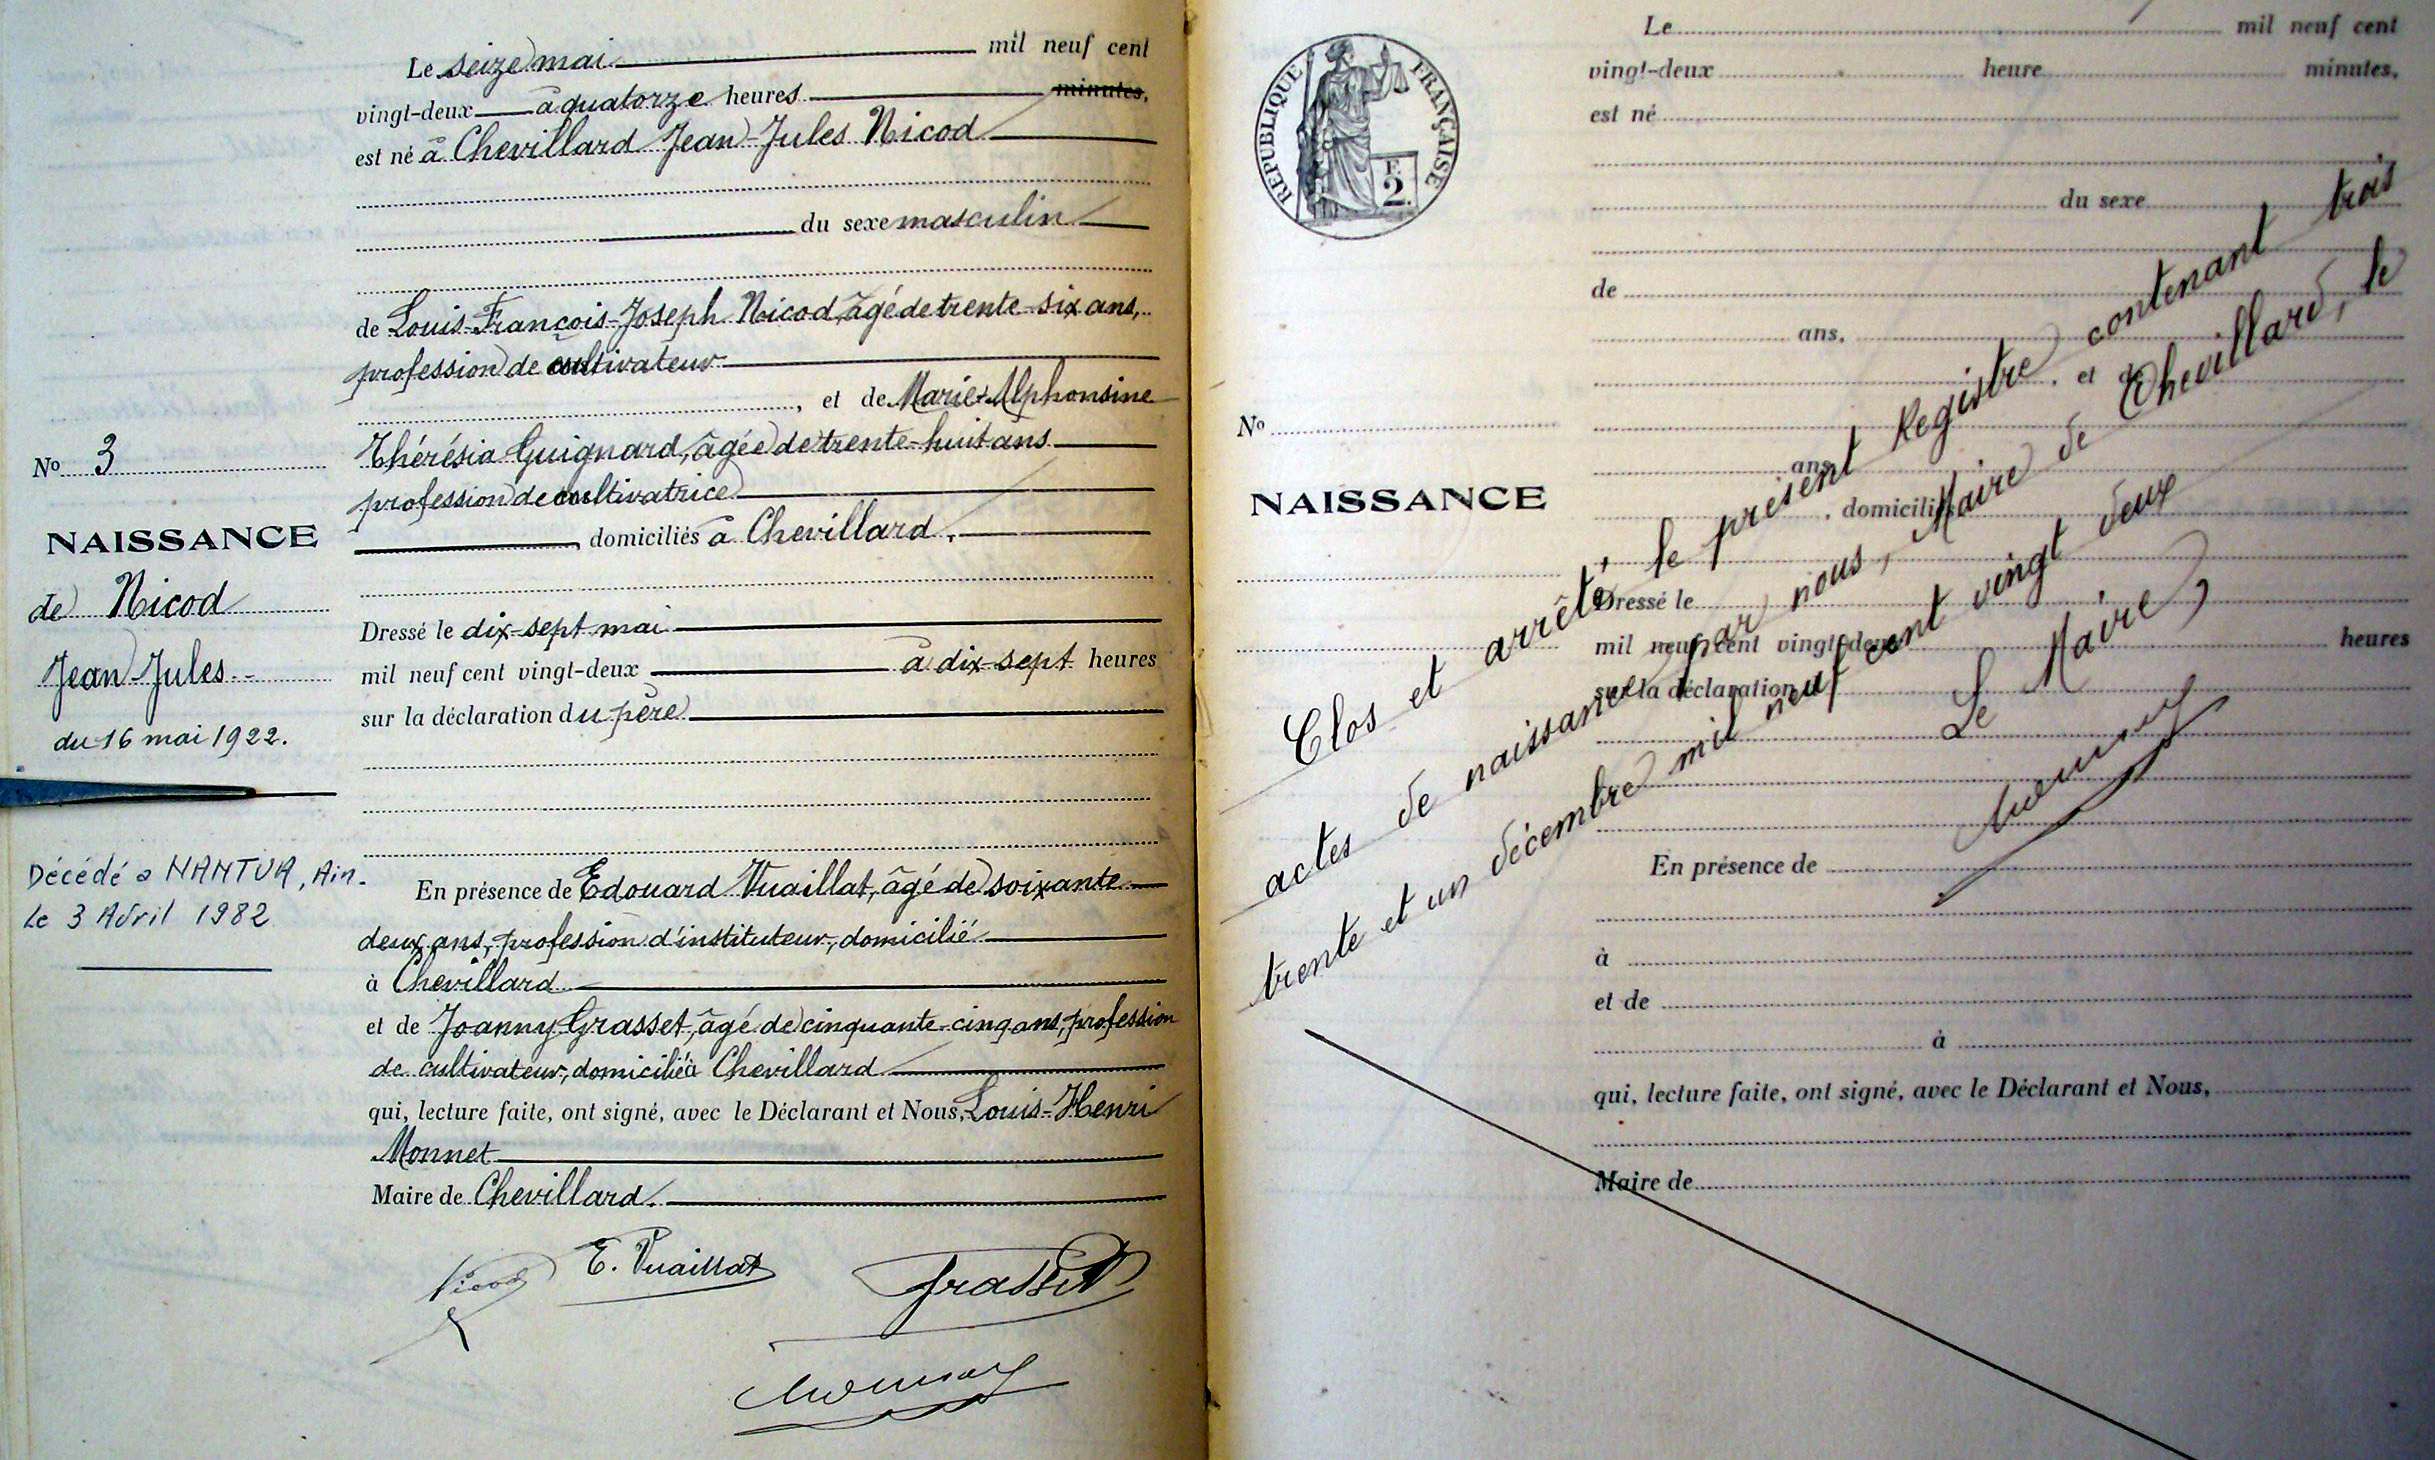 Le seize mai mil neuf cent
vingt-deux à quatorze heures minutes,
est né à Chevillard Jean-Jules Nicod
du sexe masculin
de Louis-François-Joseph Nicod, âgé de trente-six ans,
profession de cultivateur
, et de Marie-Alphonsine
Thérésia Guignard, âgée de trente-huit ans
profession de cultivatrice
, domiciliés à Chevillard.
Dressé le dix-sept mai
mil neuf cent vingt-deux à dix-sept heures
sur la déclaration du père
En présence de Edouard Vuaillat, âgé de soixante-
deux ans, profession d'instituteur, domicilié
à Chevillard
et de Joanny Grasset, âgé de cinquante-cinq ans, profession
de cultivateur, domicilié à Chevillard
qui, lecture faite, ont signé, avec le Déclarant et Nous, Louis-Henri
Monnet
Maire de Chevillard.
Nicod E. Vuaillat Grasset
No 3
NAISSANCE
de Nicod
Jean-Jules
du 16 mai 1922.
Décédé à NANTUA, Ain.
Le 3 Avril 1982
REPUBLIQUE FRANÇAISE
F.
2.
No
NAISSANCE
Le mil neuf cent
vingt-deux heure minutes,
est né
du sexe
de
ans,
, et de
ans
, domiciliés
Dressé le
mil neuf cent vingt-deux heures
sur la déclaration
En présence de
à
et de
à
qui, lecture faite, ont signé, avec le Déclarant et Nous,
Maire de
Clos et arrêté, le présent Registre contenant trois
actes de naissance par nous, Maire de Chevillard, le
trente et un décembre mil neuf cent vingt deux
Le Maire,